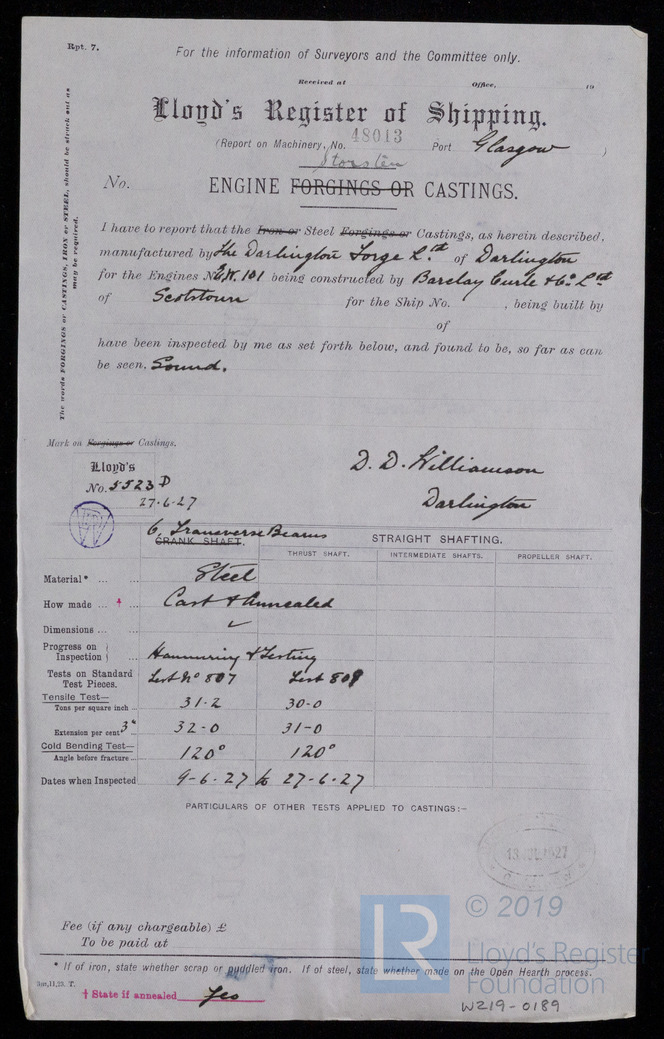 Rpt. 7.
For the information of Surveyors and the Committee only.
Received at Office, 19
Lloyd's Register of Shipping.
(Report on Machinery, No. 48013 Port Glasgow )
Storsten
No. ENGINE FORGINGS OR CASTINGS.
The words FORGINGS or CASTINGS, IRON or STEEL, should be struck out as may be required.
I have to report that the Iron or Steel Forgings or Castings, as herein described,
manufactured by The Darlington Forge Ltd. of Darlington
for the Engines No. 101 being constructed by Barclay Curle & Co. Ltd
of Scotstoun for the Ship No. , being built by
of
have been inspected by me as set forth below, and found to be, so far as can
be seen, Sound.
Mark on Forgings or Castings.
Lloyd's
No. 5523 D
27.6.27
D. D. Williamson
Darlington
6 Transverse Beams
CRANK SHAFT.
STRAIGHT SHAFTING.
THRUST SHAFT. INTERMEDIATE SHAFTS. PROPELLER SHAFT.
Material* ... ... Steel
How made ... † ... Cast & Annealed
Dimensions ... ✓
Progress on Inspection } Hammering & Testing
Tests on Standard Test Pieces. Test No 807 Test 808
Tensile Test—
Tons per square inch .. 31.2 30-0
Extension per cent 3" 32-0 31-0
Cold Bending Test—
Angle before fracture ... 120° 120°
Dates when Inspected 9-6-27 to 27-6-27
PARTICULARS OF OTHER TESTS APPLIED TO CASTINGS:–
13 JUL 1927
Fee (if any chargeable) £
To be paid at
* If of iron, state whether scrap or puddled iron. If of steel, state whether made on the Open Hearth process.
† State if annealed Yes
LR
© 2019
Lloyd's Register
Foundation
W219-0189